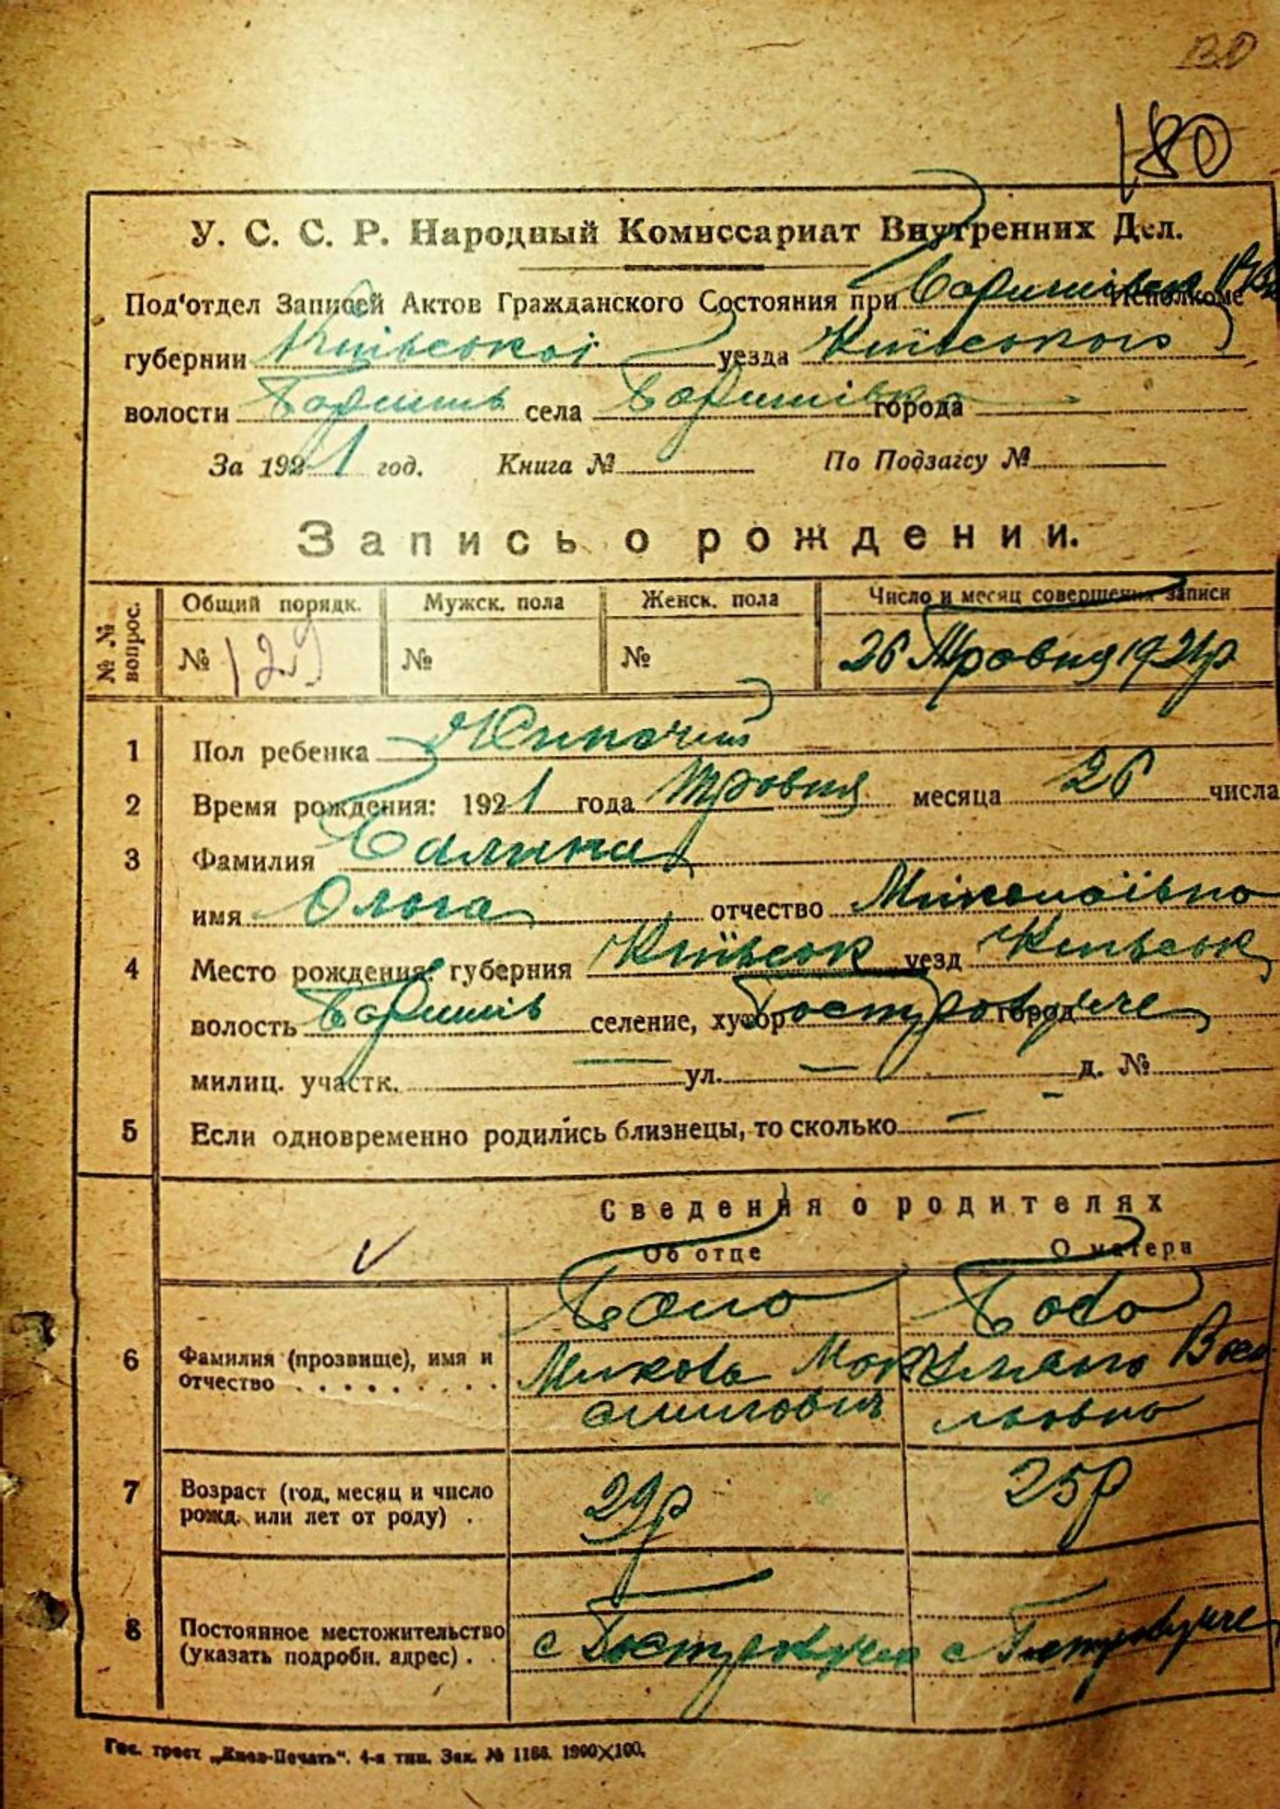 180
У. С. С. Р. Народный Комиссариат Внутренних Дел.
Под'отдел Записей Актов Гражданского Состояния при Исполкоме
губернии Київської уезда Київського
волости Баришів села Баришівка города
За 1921 год. Книга № По Подзагсу №
Запись о рождении.
№ № вопрос. Общий порядк. Мужск. пола Женск. пола Число и месяц совершения записи
№ 129 № № 26 Травня 1921р
1 Пол ребенка Жиночий
2 Время рождения: 1921 года Травня месяца 26 числа
3 Фамилия
имя Ольга отчество Миколаївна
4 Место рождения: губерния Київськ уезд Київськ
волость Баришів селение, хутор город
милиц. участк. — ул. — д. № -
5 Если одновременно родились близнецы, то сколько —
Сведения о родителях
Об отце О матери
6 Фамилия (прозвище), имя и
отчество . . . . . . . . .
7 Возраст (год, месяц и число 29р 25р
рожд. или лет от роду) .
8 Постоянное местожительство
(указать подробн. адрес) . . с с
Гос. трест „Киев-Печать“. 4-я тип. Зак. № 1186. 1900×100.